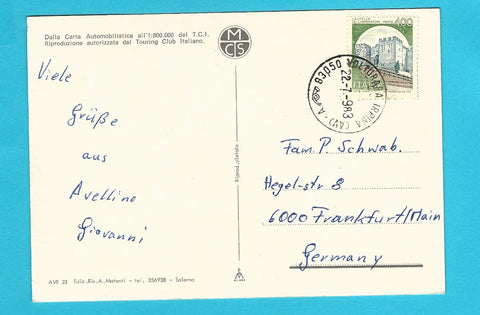 Dalla Carta Automobilistica all'1:800.000 del T.C.I.
Riproduzione autorizzata dal Touring Club Italiano.
MCS
400
ITALIA
83050 VOLTURARA IRPINA (AV) - A
22-7-983
Viele
Grüße
aus
Avellino
Giovanni
Riprod. vietata
Fam. P. Schwab.
Hegel-str 8
6000 Frankfurt/Main
Germany
AVE 23 Ediz. Ris. A. Matonti - tel. 356938 - Salerno